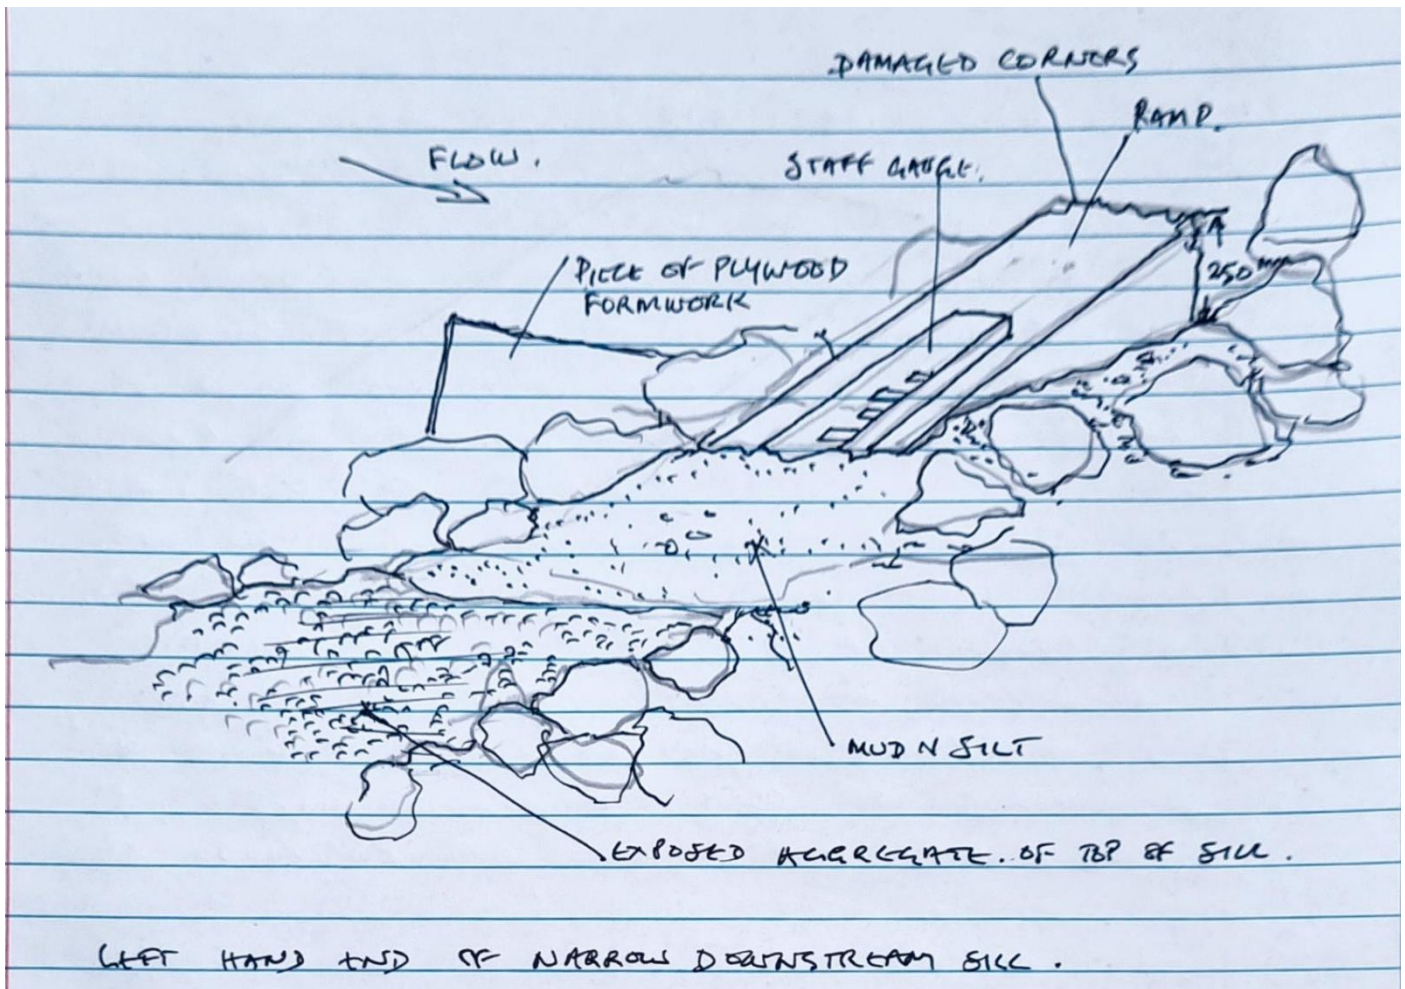 DAMAGED CORNERS
RAMP.
FLOW.
STAFF GAUGE.
250mm
PIECE OF PLYWOOD
FORMWORK
MUD N SILT
EXPOSED AGGREGATE. OF TOP OF SILL.
LEFT HAND END OF NARROW DOWNSTREAM SILL.